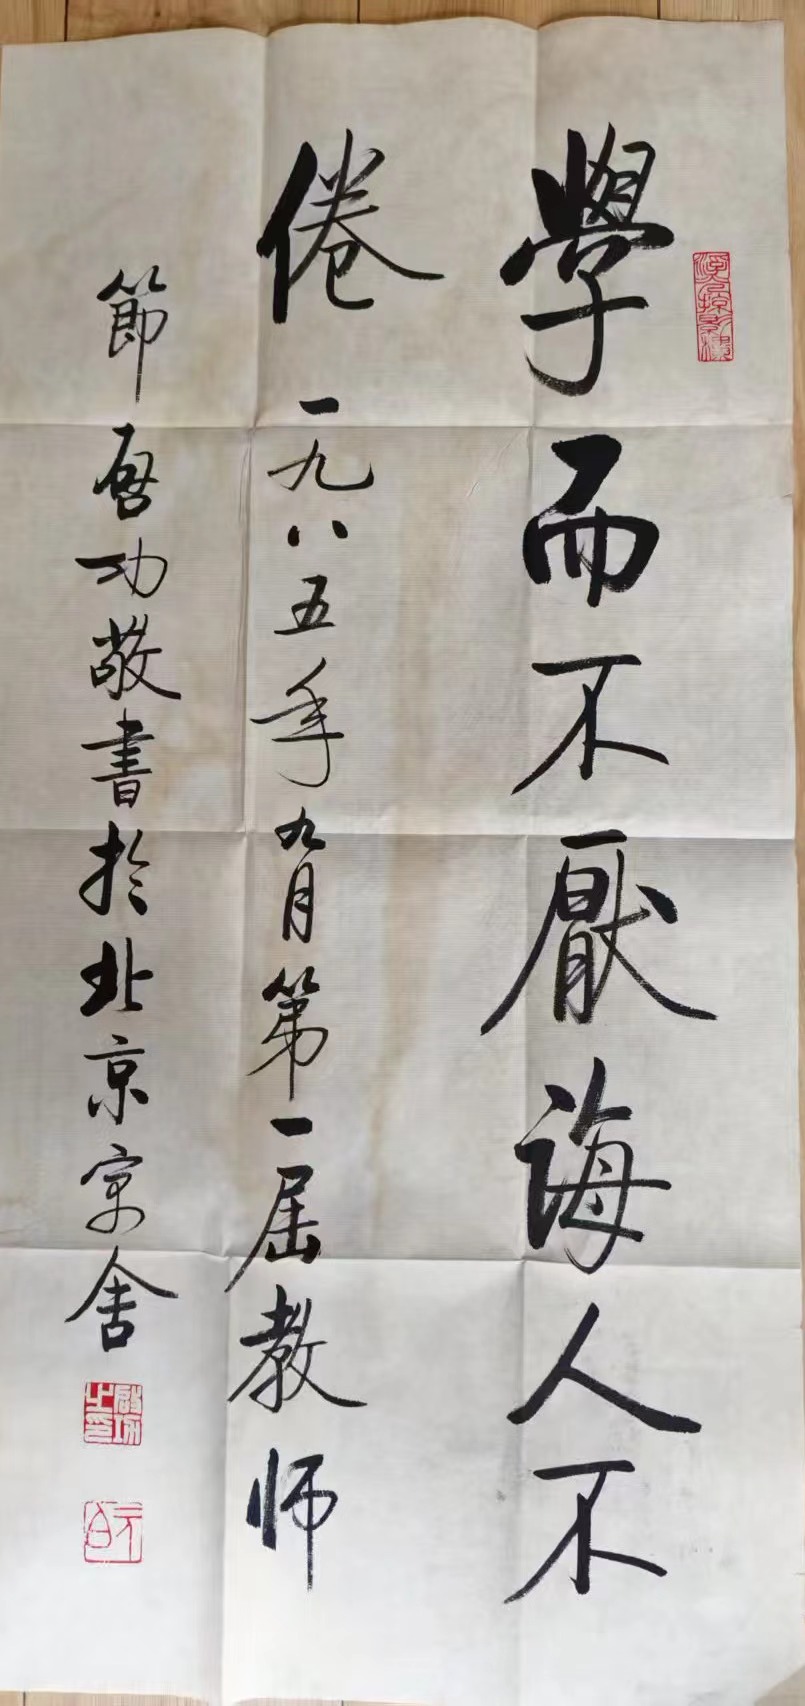 學而不厭誨人不
倦 一九八五年九月第一届教师
節 啓功敬書於北京寓舍
啟功之印
元白